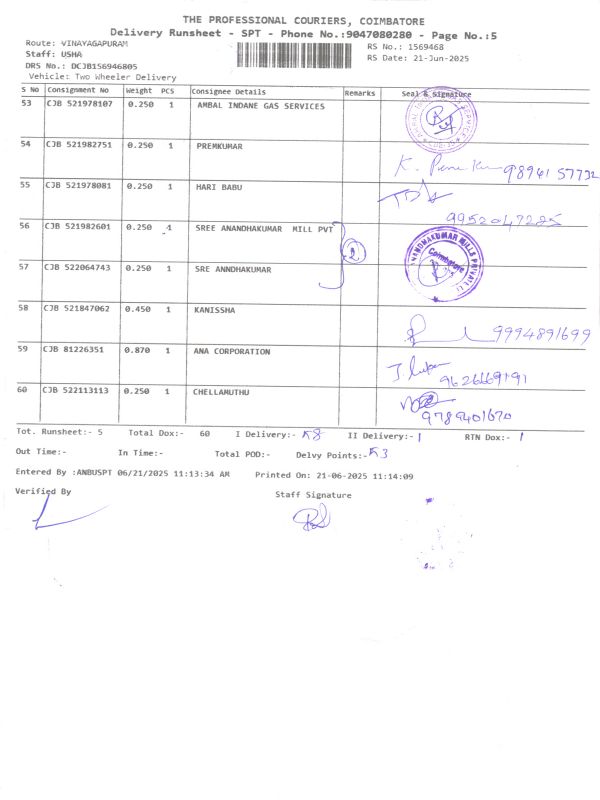 THE PROFESSIONAL COURIERS, COIMBATORE
Delivery Runsheet - SPT - Phone No.:9047080280 - Page No.:5
Route: VINAYAGAPURAM RS No.: 1569468
Staff: USHA RS Date: 21-Jun-2025
DRS No.: DCJB156946805
Vehicle: Two Wheeler Delivery
S No Consignment No Weight PCS Consignee Details Remarks Seal & Signature
53 CJB 521978107 0.250 1 AMBAL INDANE GAS SERVICES
54 CJB 521982751 0.250 1 PREMKUMAR
K. Prem Kumar 9894157732
55 CJB 521978081 0.250 1 HARI BABU
9952047225
56 CJB 521982601 0.250 1 SREE ANANDHAKUMAR MILL PVT
2
Coimbatore
57 CJB 522064743 0.250 1 SRE ANNDHAKUMAR
58 CJB 521847062 0.450 1 KANISSHA
9994891699
59 CJB 81226351 0.870 1 ANA CORPORATION
9626669191
60 CJB 522113113 0.250 1 CHELLAMUTHU
9789401670
Tot. Runsheet:- 5 Total Dox:- 60 I Delivery:- 58 II Delivery:- 1 RTN Dox:- 1
Out Time:- In Time:- Total POD:- Delvy Points:- 53
Entered By :ANBUSPT 06/21/2025 11:13:34 AM Printed On: 21-06-2025 11:14:09
Verified By Staff Signature